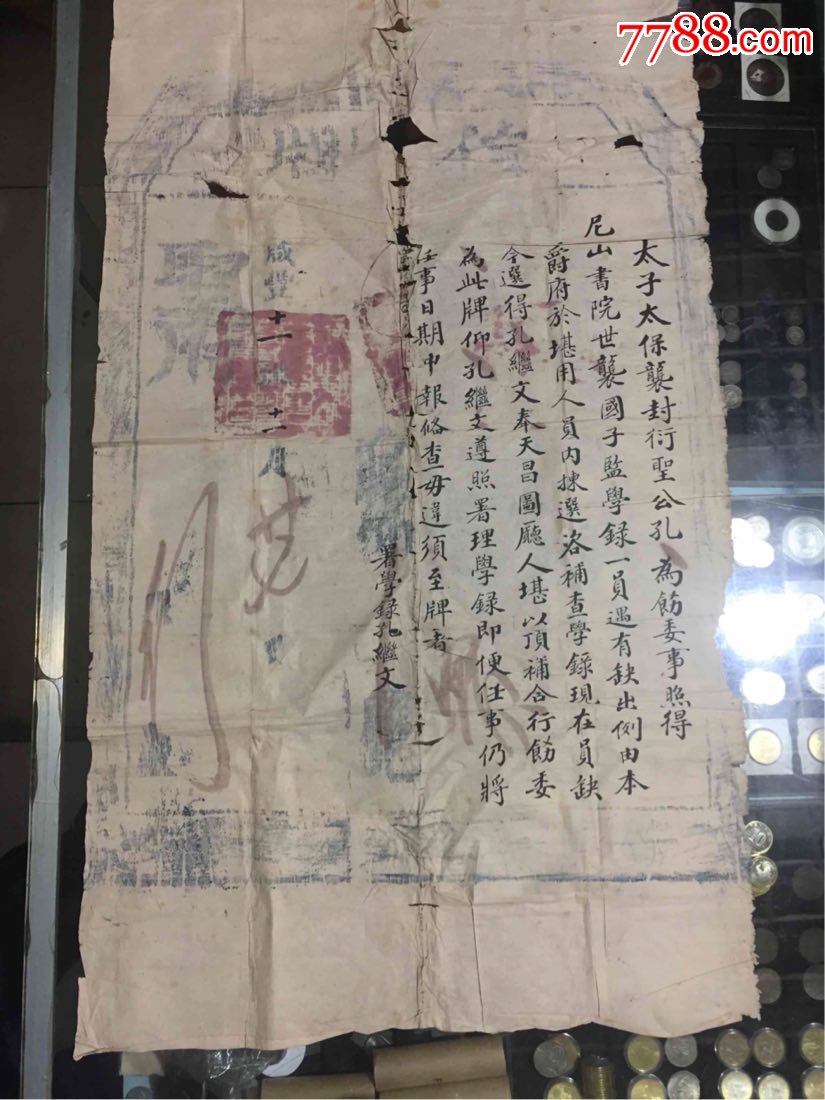 7788.com
太子太保襲封衍聖公孔 為飭委事照得
尼山書院世襲國子監學錄一員遇有缺出例由本
爵府於堪用人員內揀選洛補查學錄現在員缺
今選得孔繼文奉天昌圖廳人堪以頂補合行飭委
為此牌仰孔繼文遵照署理學錄即便任事仍將
任事日期申報俻查毋違須至牌者
署學錄孔繼文
咸豐十一年十一月